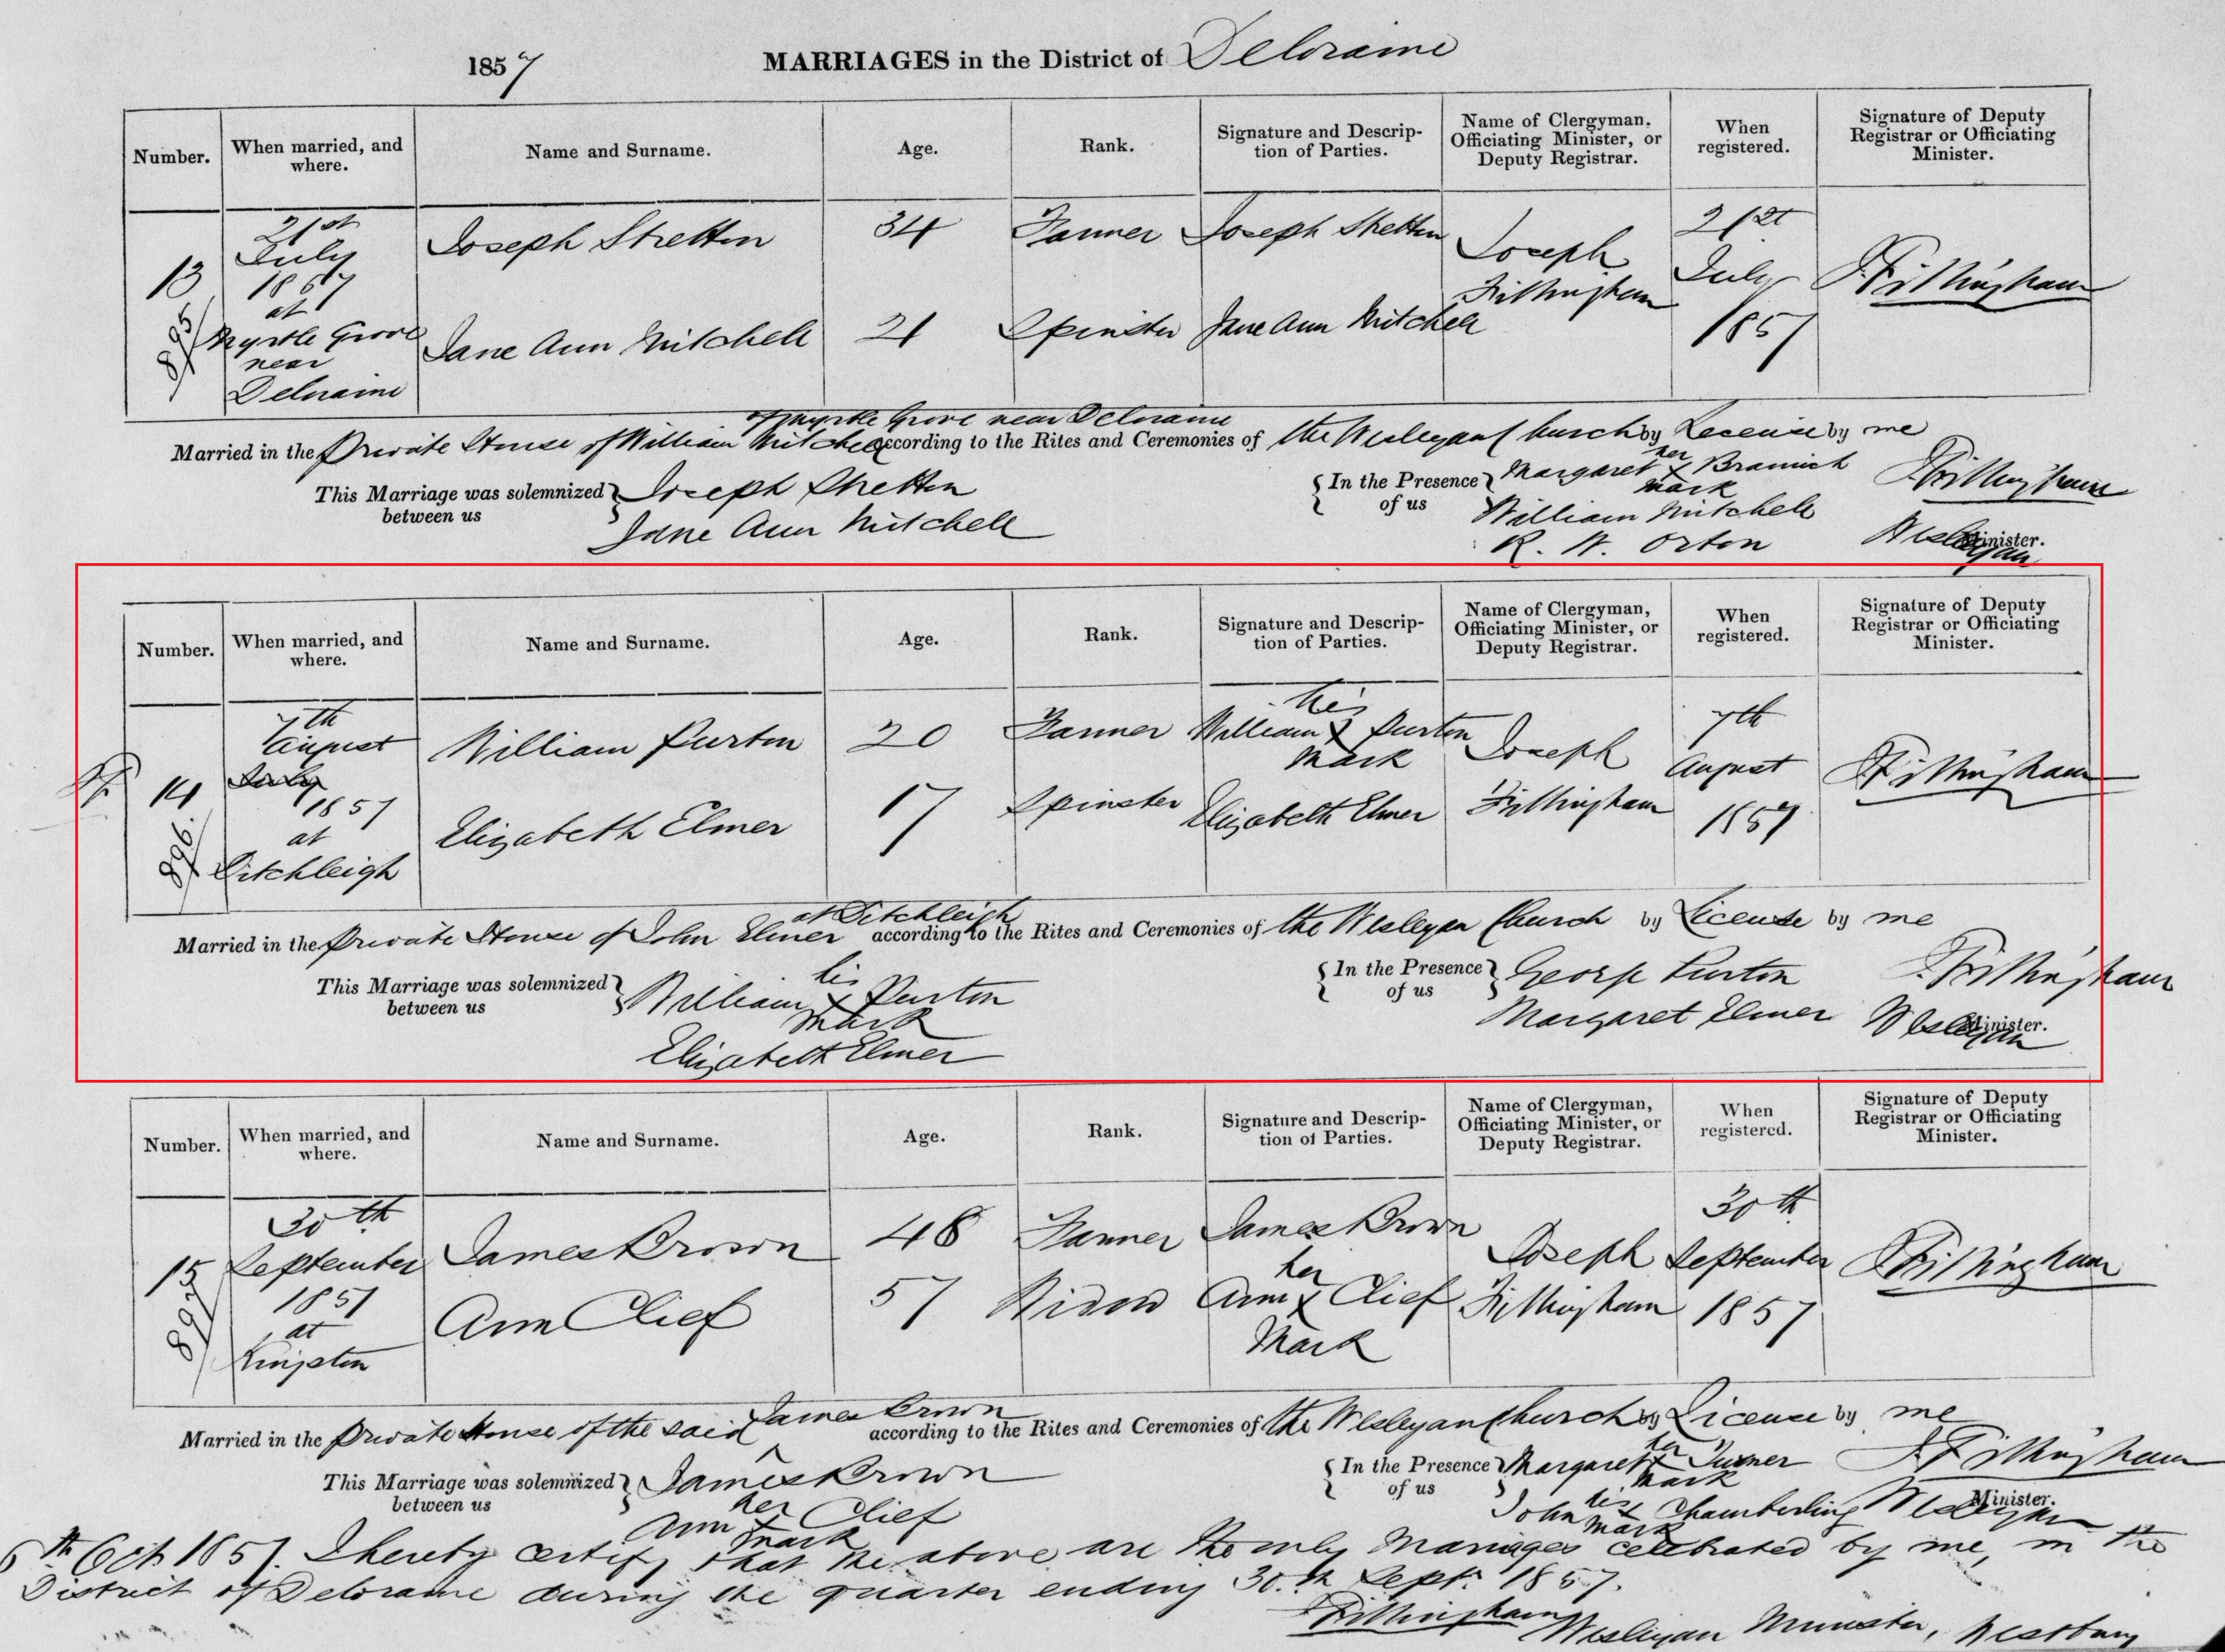 1857 MARRIAGES in the District of Deloraine
Number. When married, and where. Name and Surname. Age. Rank. Signature and Description of Parties. Name of Clergyman, Officiating Minister, or Deputy Registrar. When registered. Signature of Deputy Registrar or Officiating Minister.
13
895
21st
July
1857
at
Myrtle Grove
near
Deloraine
Joseph Stretton 34 Farmer Joseph Stretton
Jane Ann Mitchell 21 Spinster Jane Ann Mitchell
Joseph
Fillingham
21st
July
1857
J. Fillingham
of Myrtle Grove near Deloraine
Married in the Private House of William Mitchell according to the Rites and Ceremonies of the Wesleyan Church by License by me
This Marriage was solemnized between us
Joseph Stretton
Jane Ann Mitchell
In the Presence of us
Margaret her X mark Bramich
William Mitchell
R. W. Orton
J. Fillingham
Wesleyan Minister.
Number. When married, and where. Name and Surname. Age. Rank. Signature and Description of Parties. Name of Clergyman, Officiating Minister, or Deputy Registrar. When registered. Signature of Deputy Registrar or Officiating Minister.
14
896.
7th
August
July
1857
at
Ditchleigh
William Purton 20 Farmer William his X Mark Purton
Elizabeth Elmer 17 Spinster Elizabeth Elmer
Joseph
Fillingham
7th
August
1857
J. Fillingham
at Ditchleigh
Married in the Private House of John Elmer according to the Rites and Ceremonies of the Wesleyan Church by License by me
This Marriage was solemnized between us
William his X Mark Purton
Elizabeth Elmer
In the Presence of us
George Purton
Margaret Elmer
J. Fillingham
Wesleyan Minister.
Number. When married, and where. Name and Surname. Age. Rank. Signature and Description of Parties. Name of Clergyman, Officiating Minister, or Deputy Registrar. When registered. Signature of Deputy Registrar or Officiating Minister.
15
897
30th
September
1857
at
Kingston
James Brown 48 Farmer James Brown
Ann Clief 57 Widow Ann her X Mark Clief
Joseph
Fillingham
30th
September
1857
J. Fillingham
James Brown
Married in the private House of the said ^ according to the Rites and Ceremonies of the Wesleyan Church by License by me
This Marriage was solemnized between us
James Brown
Ann her X mark Clief
In the Presence of us
Margaret her X Mark Turner
John his X Mark Chamberling
J. Fillingham
Wesleyan Minister.
6th Oct 1857. I hereby certify that the above are the only Marriages celebrated by me, in the
District of Deloraine during the quarter ending 30th Sept. 1857.
J. Fillingham Wesleyan Minister, Westbury